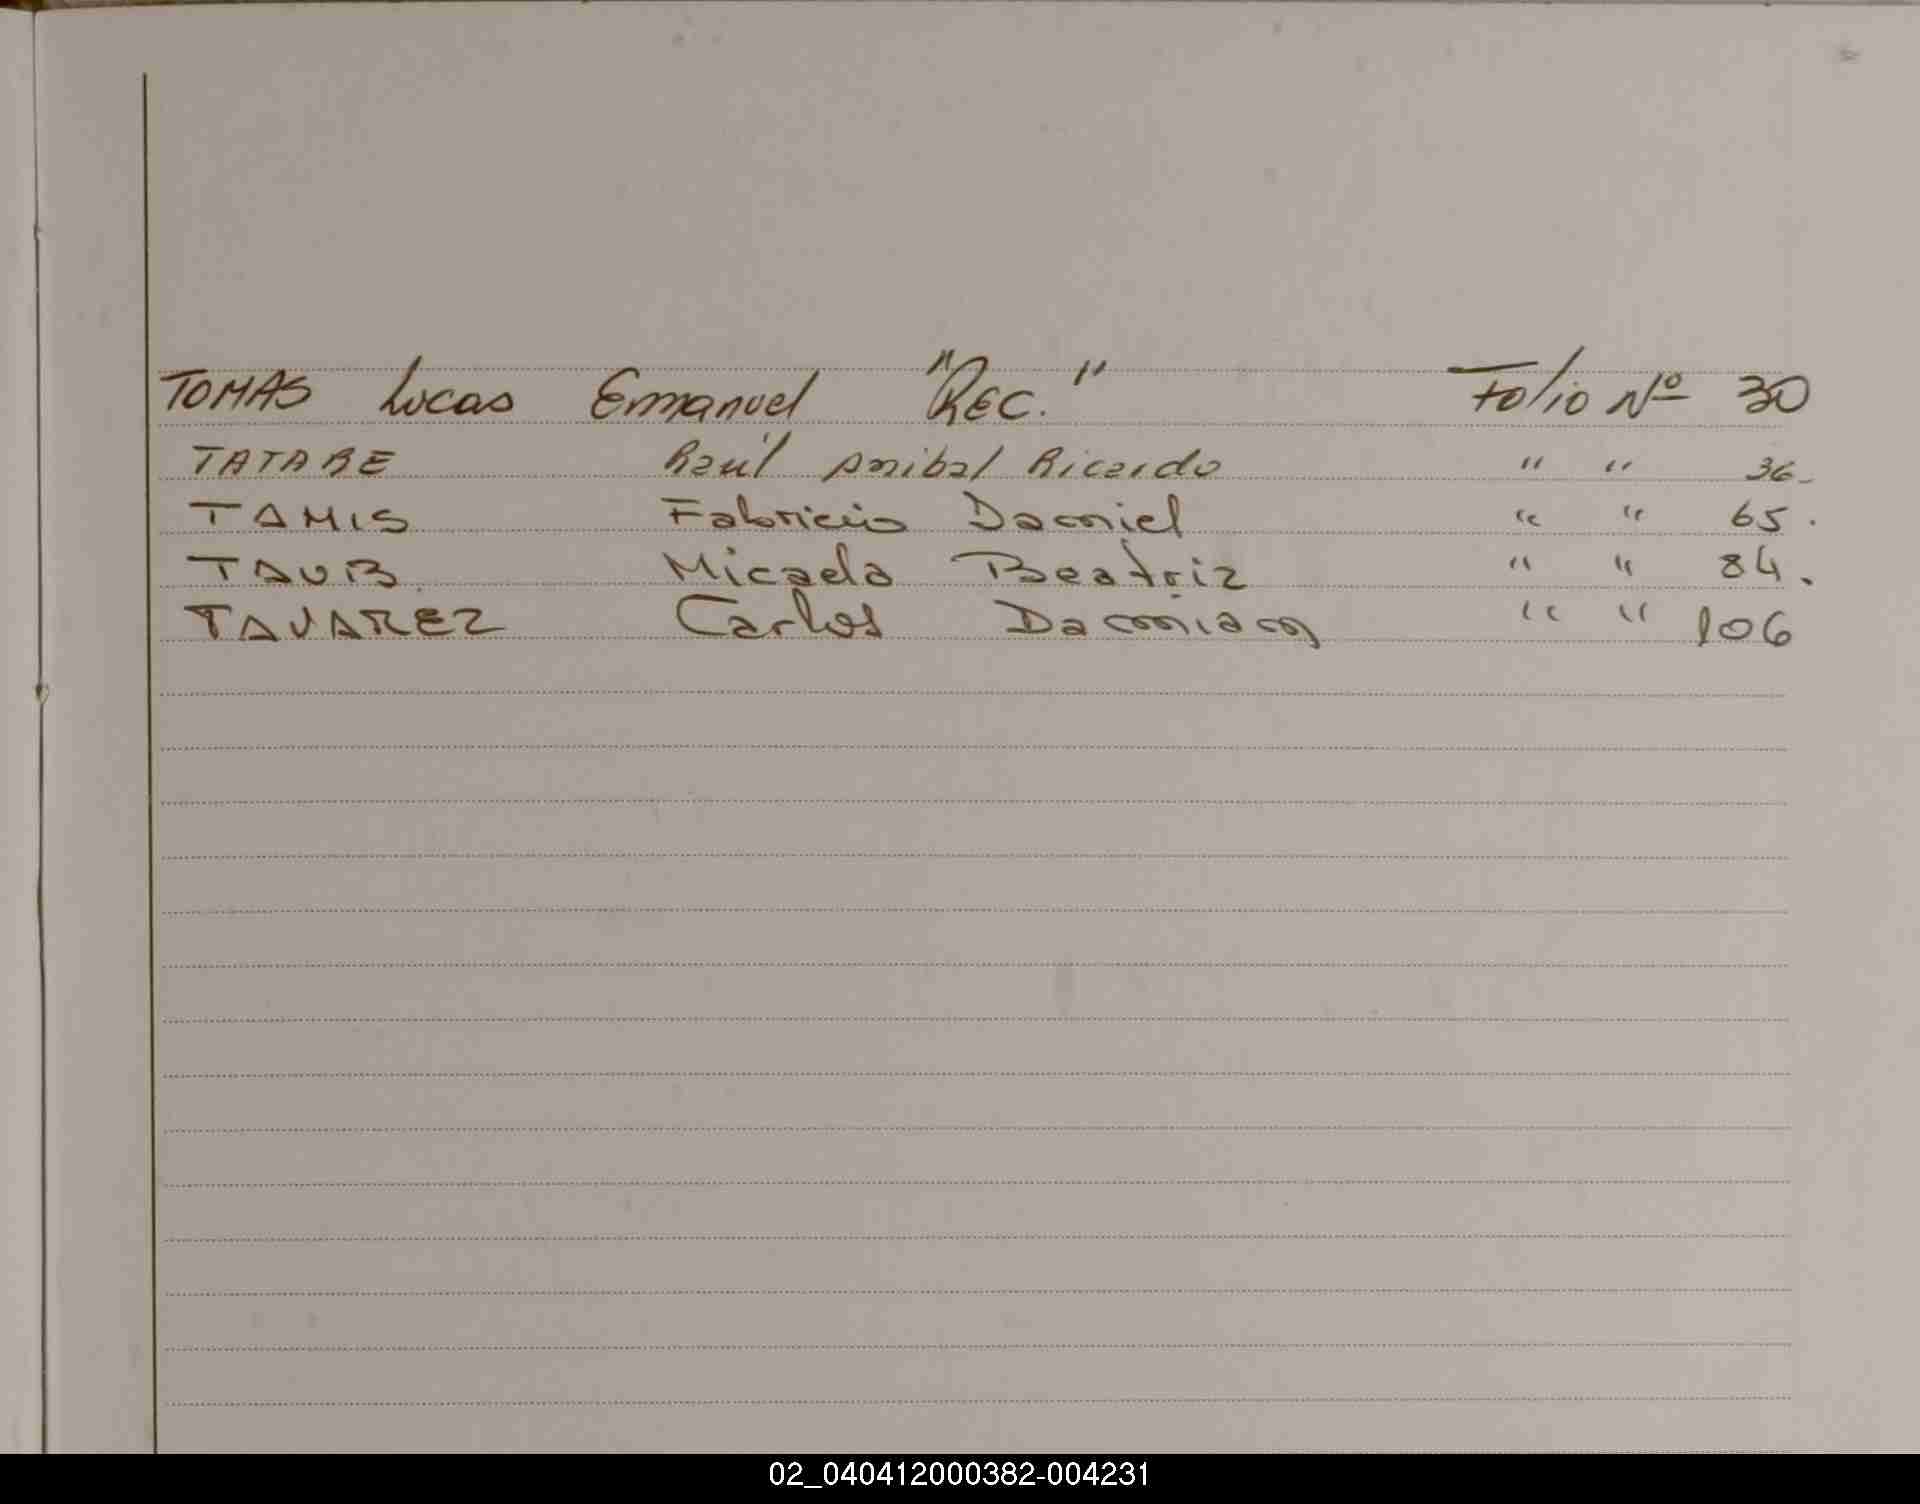 TOMAS Lucas Emmanuel "REC." Folio Nº 30
TATARE Raúl Anibal Ricardo " " 36-
TAMIS Fabricio Damiel " " 65.
TAUB Micaela Beatriz " " 84.
TAVAREZ Carlos Damian " " 106
02_040412000382-004231